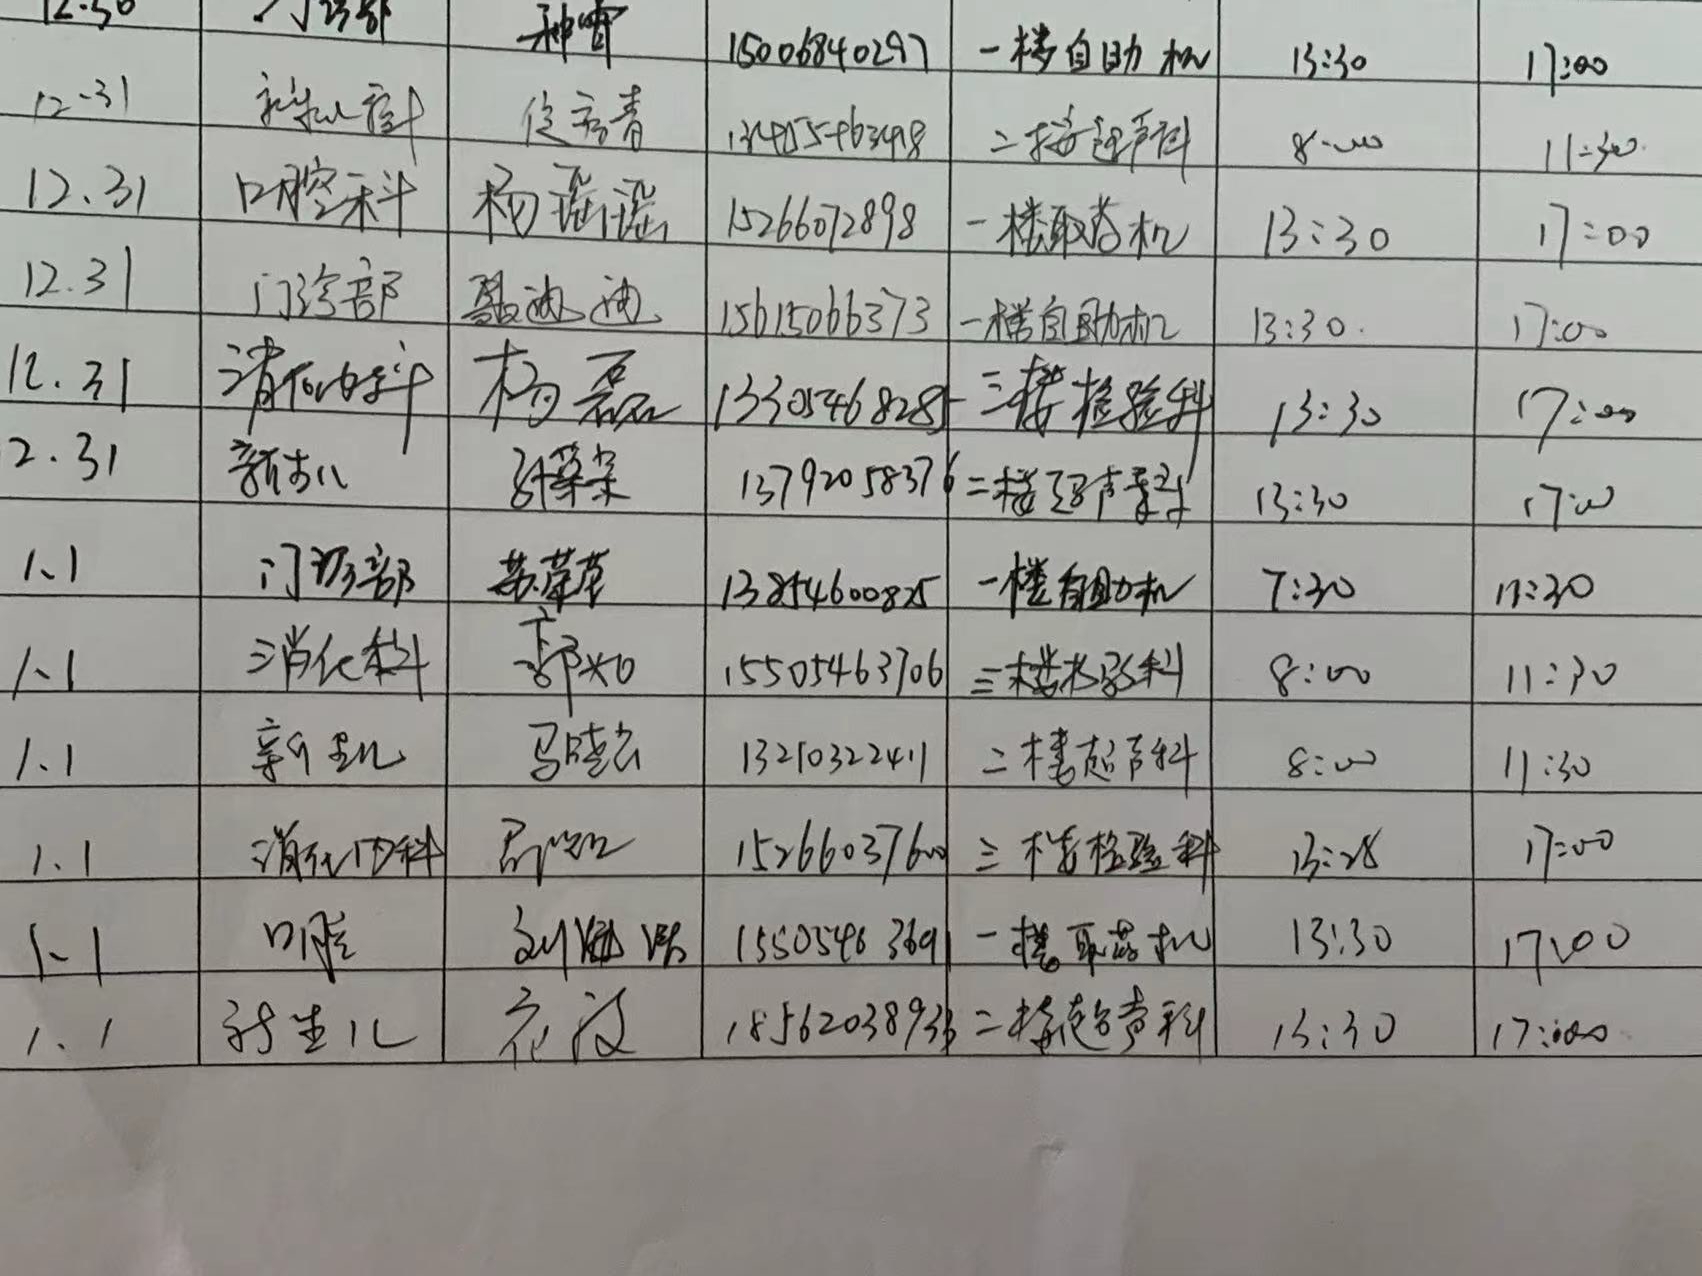 12.30 门诊部 种雷 15006840297 一楼自助机 13:30 17:00
12-31 青 二楼超声科 8:00 11:30
12.31 口腔科 杨谣谣 15266072898 一楼取药机 13:30 17:00
12.31 门诊部 迪迪 15615066373 一楼自助机 13:30 17:00
12.31 消化内科 杨磊 13305468285 三楼检验科 13:30 17:00
2.31 新生儿 13792058376 二楼超声科 13:30 17:00
1.1 门诊部 13854600825 一楼自助机 7:30 11:30
1.1 消化科 15505463706 三楼检验科 8:00 11:30
1.1 新生儿 马晓云 13210322411 二楼超声科 8:00 11:30
1.1 消化内科 15266037600 三楼检验科 13:28 17:00
1.1 口腔 刘 15505463691 一楼取药机 13:30 17:00
1.1 新生儿 18562038933 二楼超声科 13:30 17:00